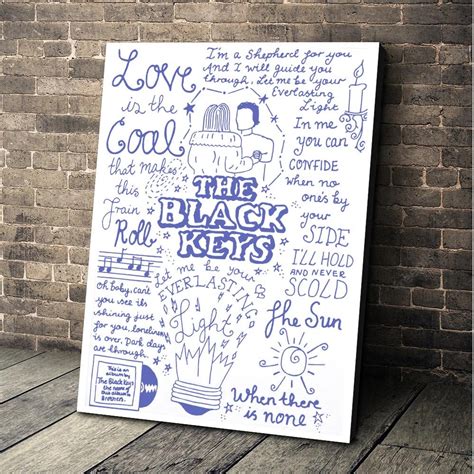 Love
is the
Coal
that makes
this
Train
Roll
I'm a Shepherd for you
And I will guide you
through, Let me be your
Everlasting
Light
In me
you can
CONFIDE
when no
one's by
your
SIDE
I'LL HOLD
AND NEVER
SCOLD
THE
BLACK
KEYS
Let me be your
EVERLASTING
Light
Oh baby, can't
you see its
shining just
for you, loneliness
is over, Dark days
are through.
This is an
album by
The Black Keys
the name of
this album is
Brothers
The Sun
When there
is none